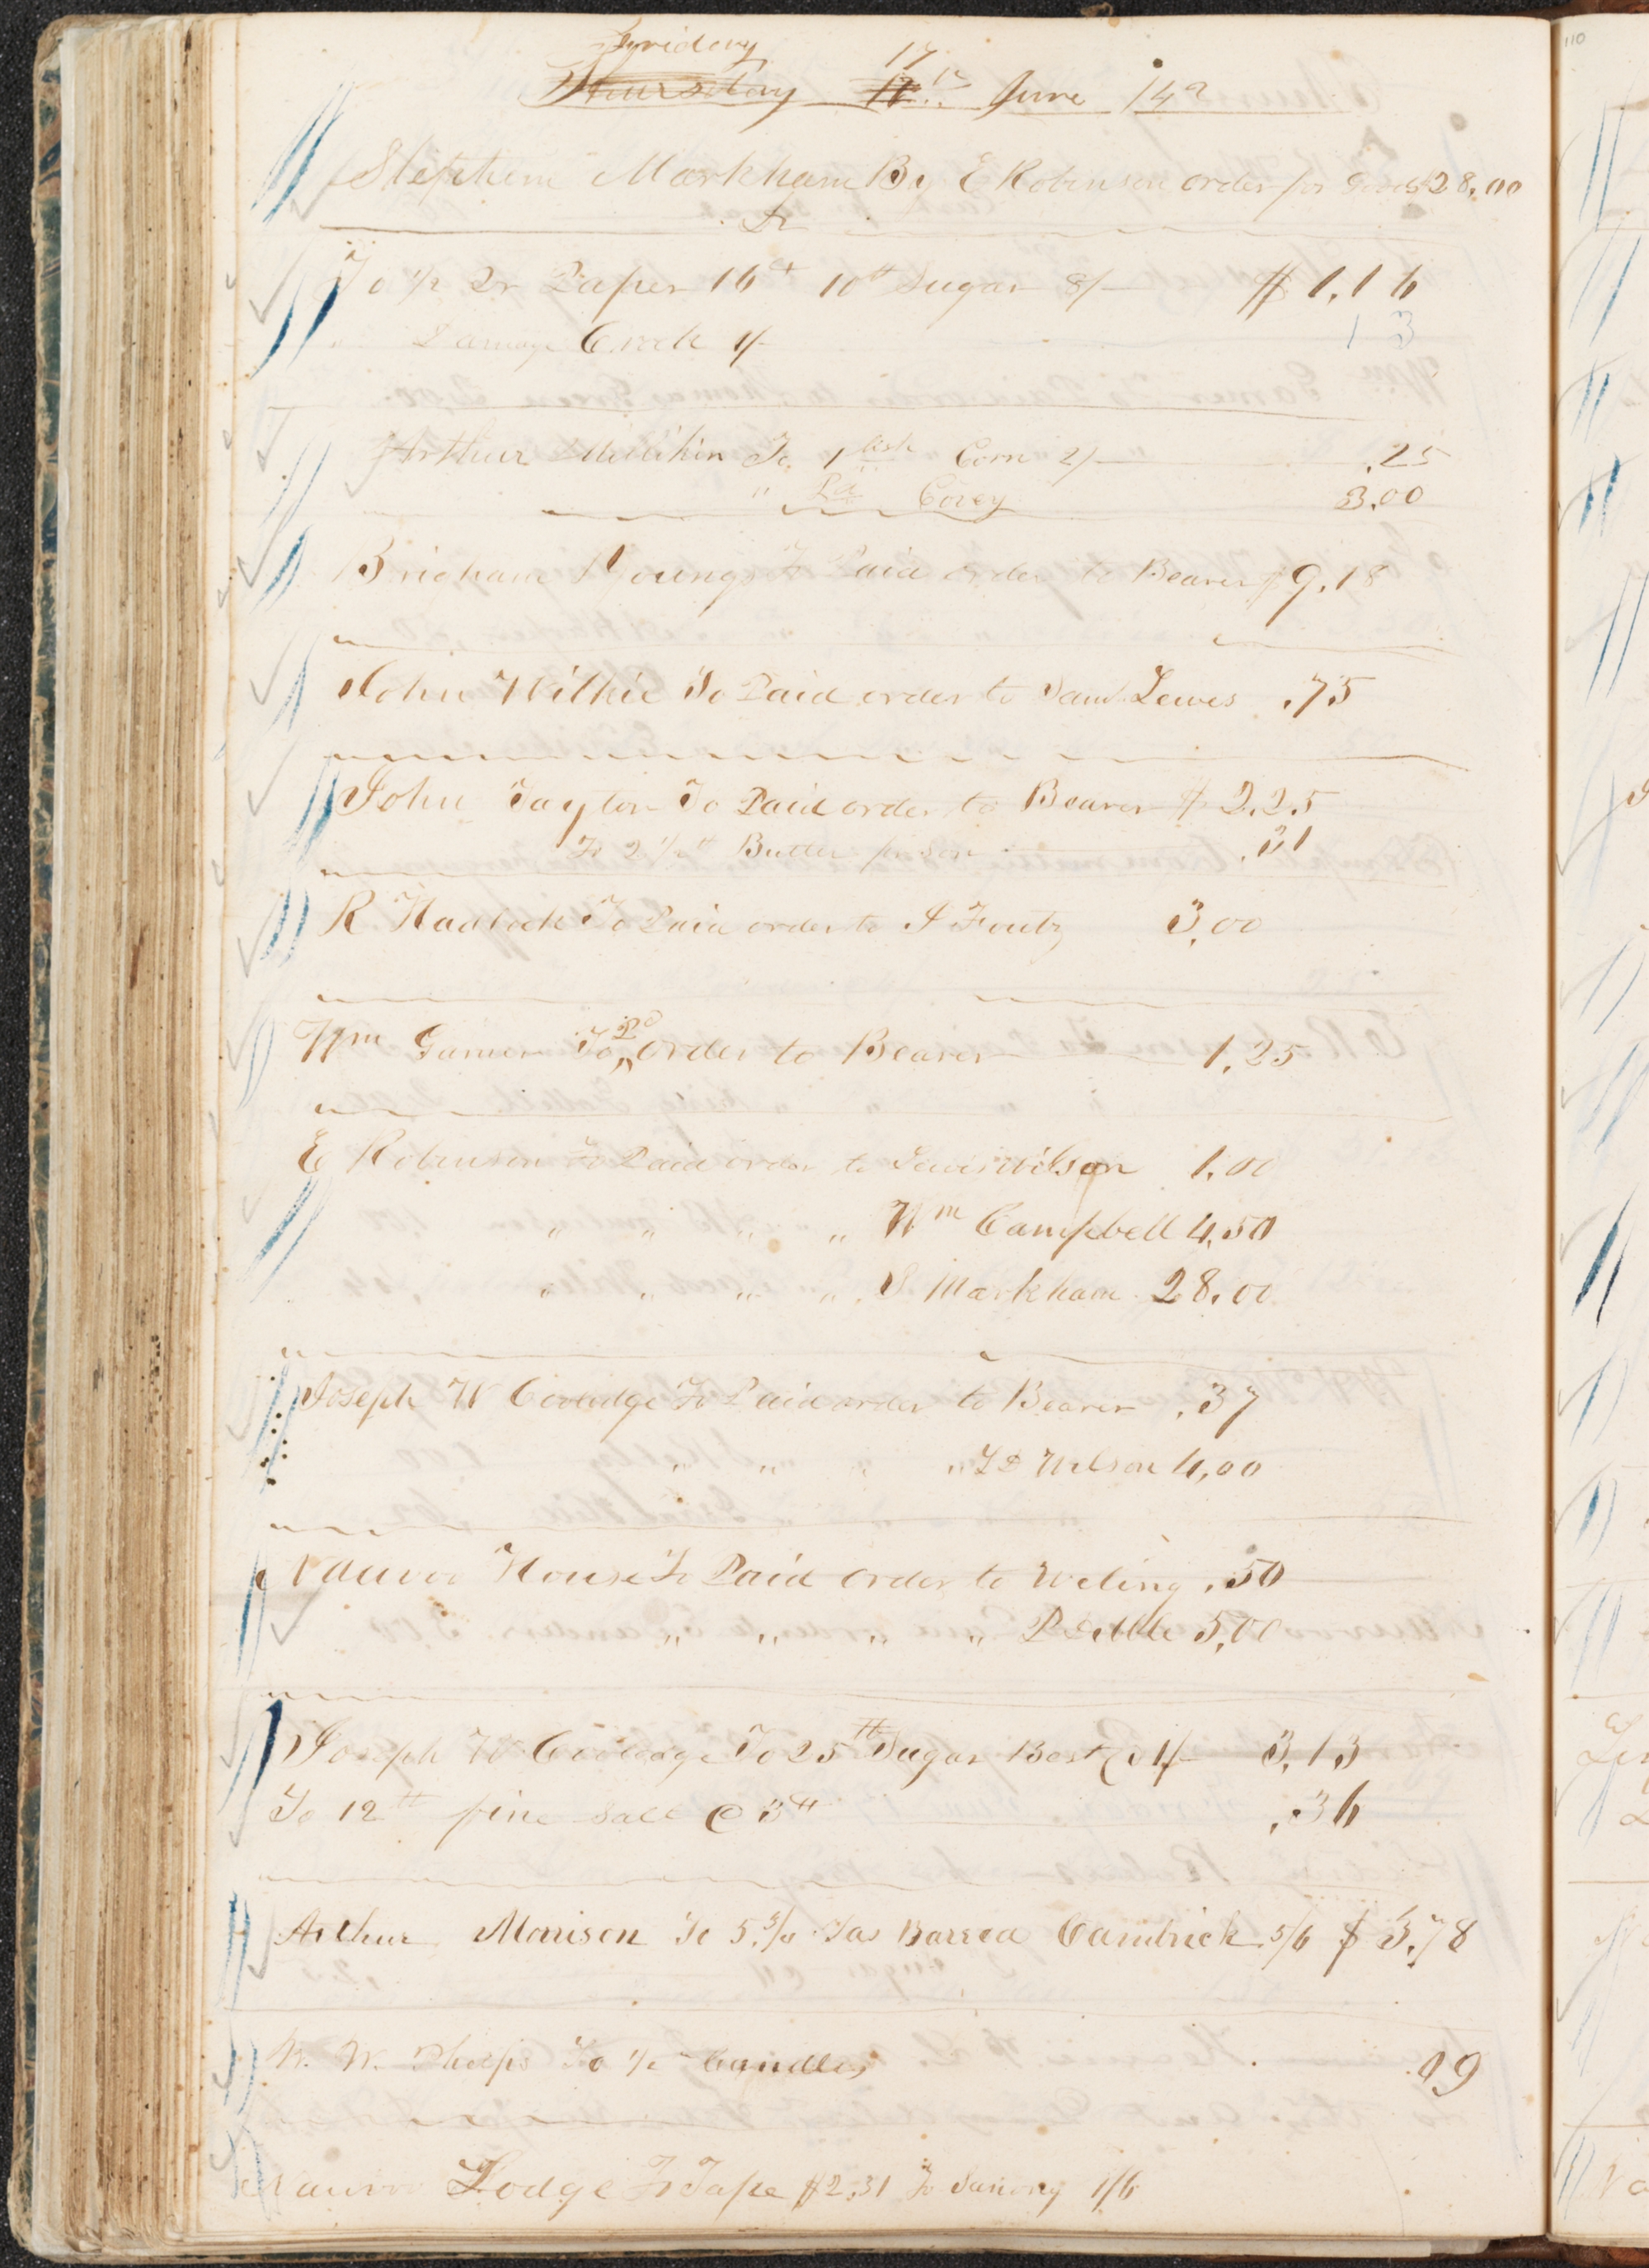 Friday 17
Thursday 17th June 142
Stephen Markham By E Robinson order for Goods 28.00
Dr
To 1/2 Qr Paper 16ct 10tt Sugar 8/- $ 1.16
" Damage Crock 1/- 13
Arthur Millikin To 1 bsh Corn 2/- .25
" Pd Covey 3.00
Brigham Young To Paid order to Bearer $ 9.18
John Wilkie To Paid order to Saml Lewes .75
John Taylor To Paid order to Bearer $ 2.25
To 2 1/2tt Butter pr Son .31
R Hadlock To Paid order to J Foutz 3,00
Wm Garner To Pd order to Bearer 1.25
E Robinson To Paid order to Lewis Wilson 1.00
" " " " Wm Campbell 4.50
" " " " S. Markham 28.00
Joseph W Coolidge To Paid order to Bearer .37
" " " " L D Wilson 4,00
Nauvoo House To Paid order to Weling .50
" " " " P 5,00
Joseph W Coolidge To 25tt Sugar Best @ 1/- 3.13
To 12tt fine Salt @ 3ct .36
Arthur Morison To 5 Yds Barred Cambrick 5/6 $ 3.78
W. W. Phelps To 1/2 Candles .09
Nauvoo Lodge To Tape $2.31 To 1/6
110